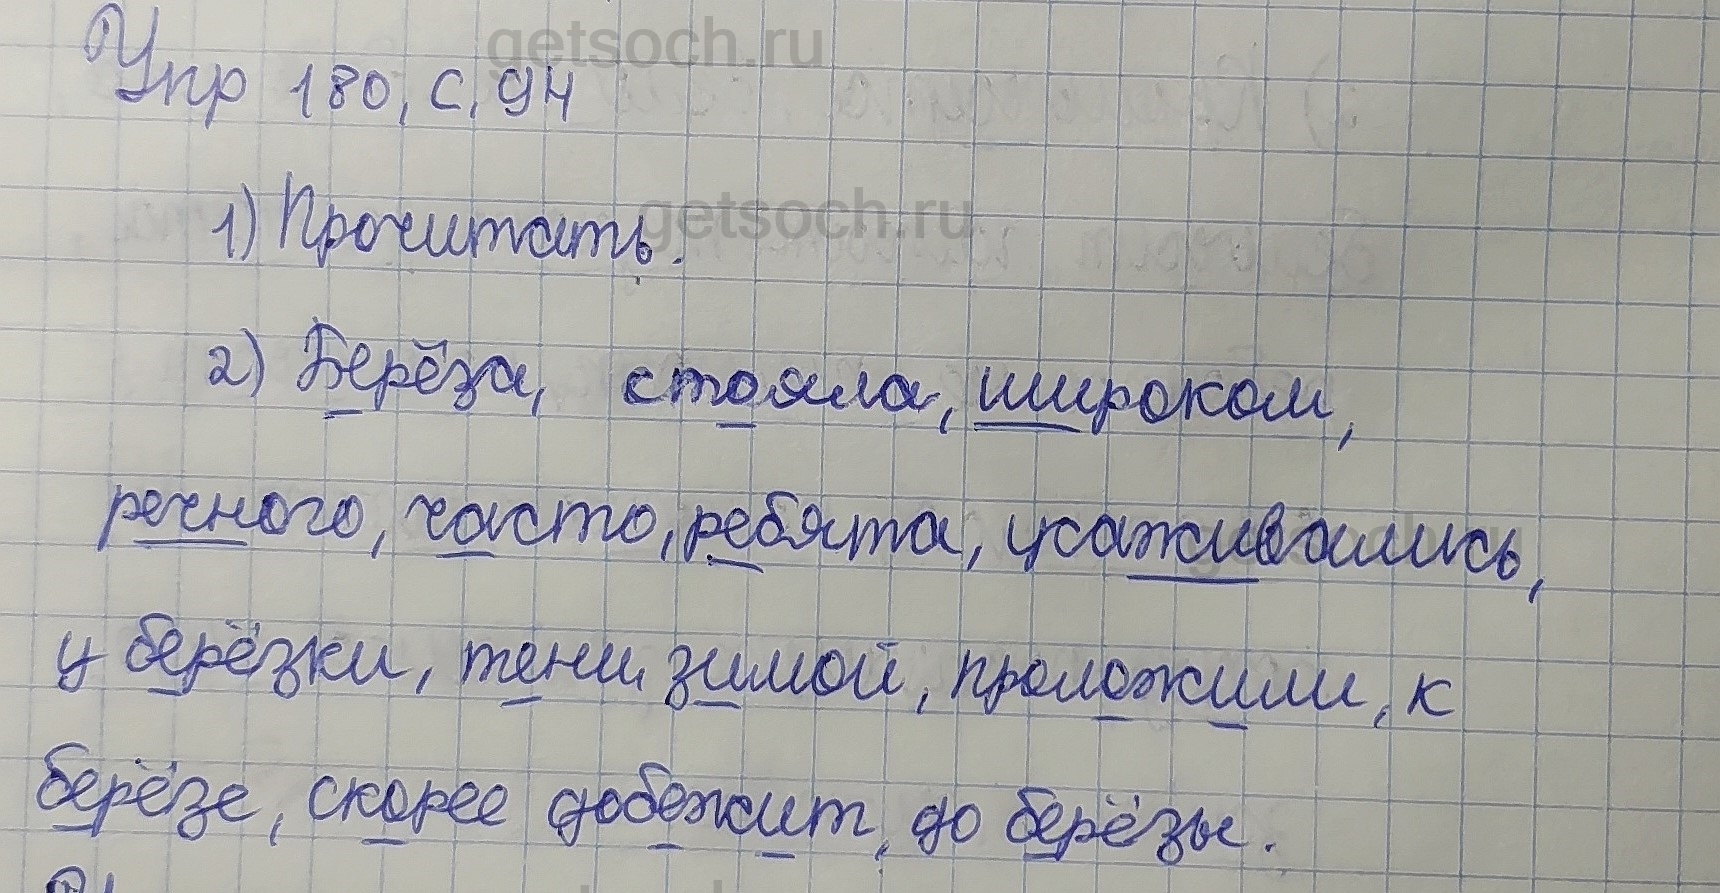 getsoch.ru
Упр 180, с. 94
1) Прочитать.
getsoch.ru
2) Берёза, стояла, широком,
речного, часто, ребята, усаживались,
getsoch.ru
у берёзки, тени зимой, проложили, к
берёзе, скорее добежит, до берёзы.